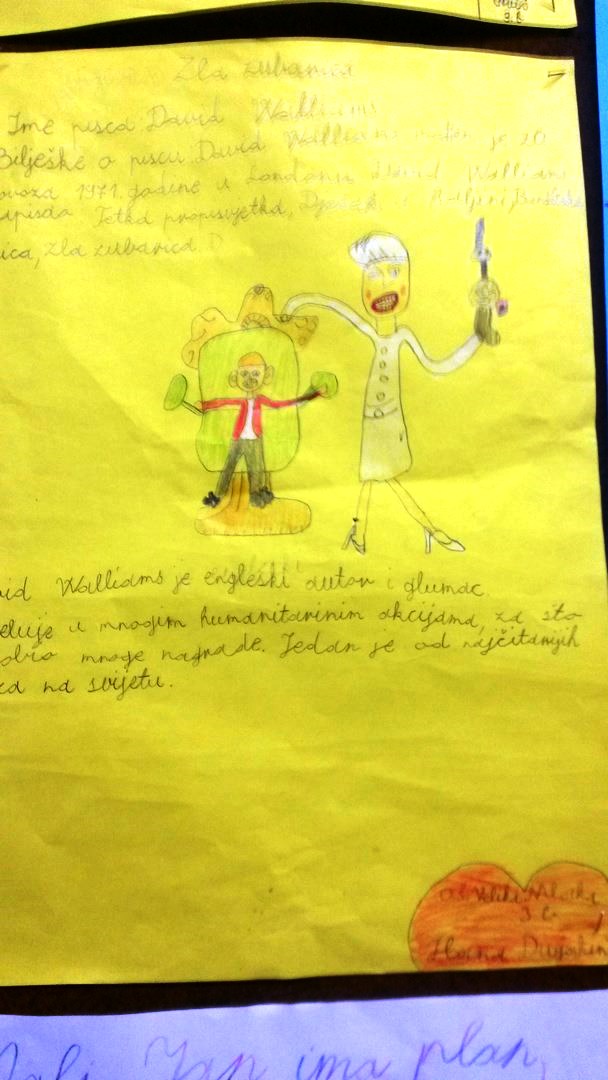 3. b
Zla zubarica
Ime pisca: David Walliams
Bilješke o piscu: David Walliams je 20
1971. godine u Londonu. David Walliams
Tetka propisvjetka, Djedica
ica, Zla zubarica.
id Walliams je engleski autor i glumac.
eluje u mnogim humanitarinim akcijama, za što
obio mnoge nagrade. Jedan je od najčitanijih
ca na svijetu.
Oš Velika Mlaka
3. b
Mali Jan ima plan,